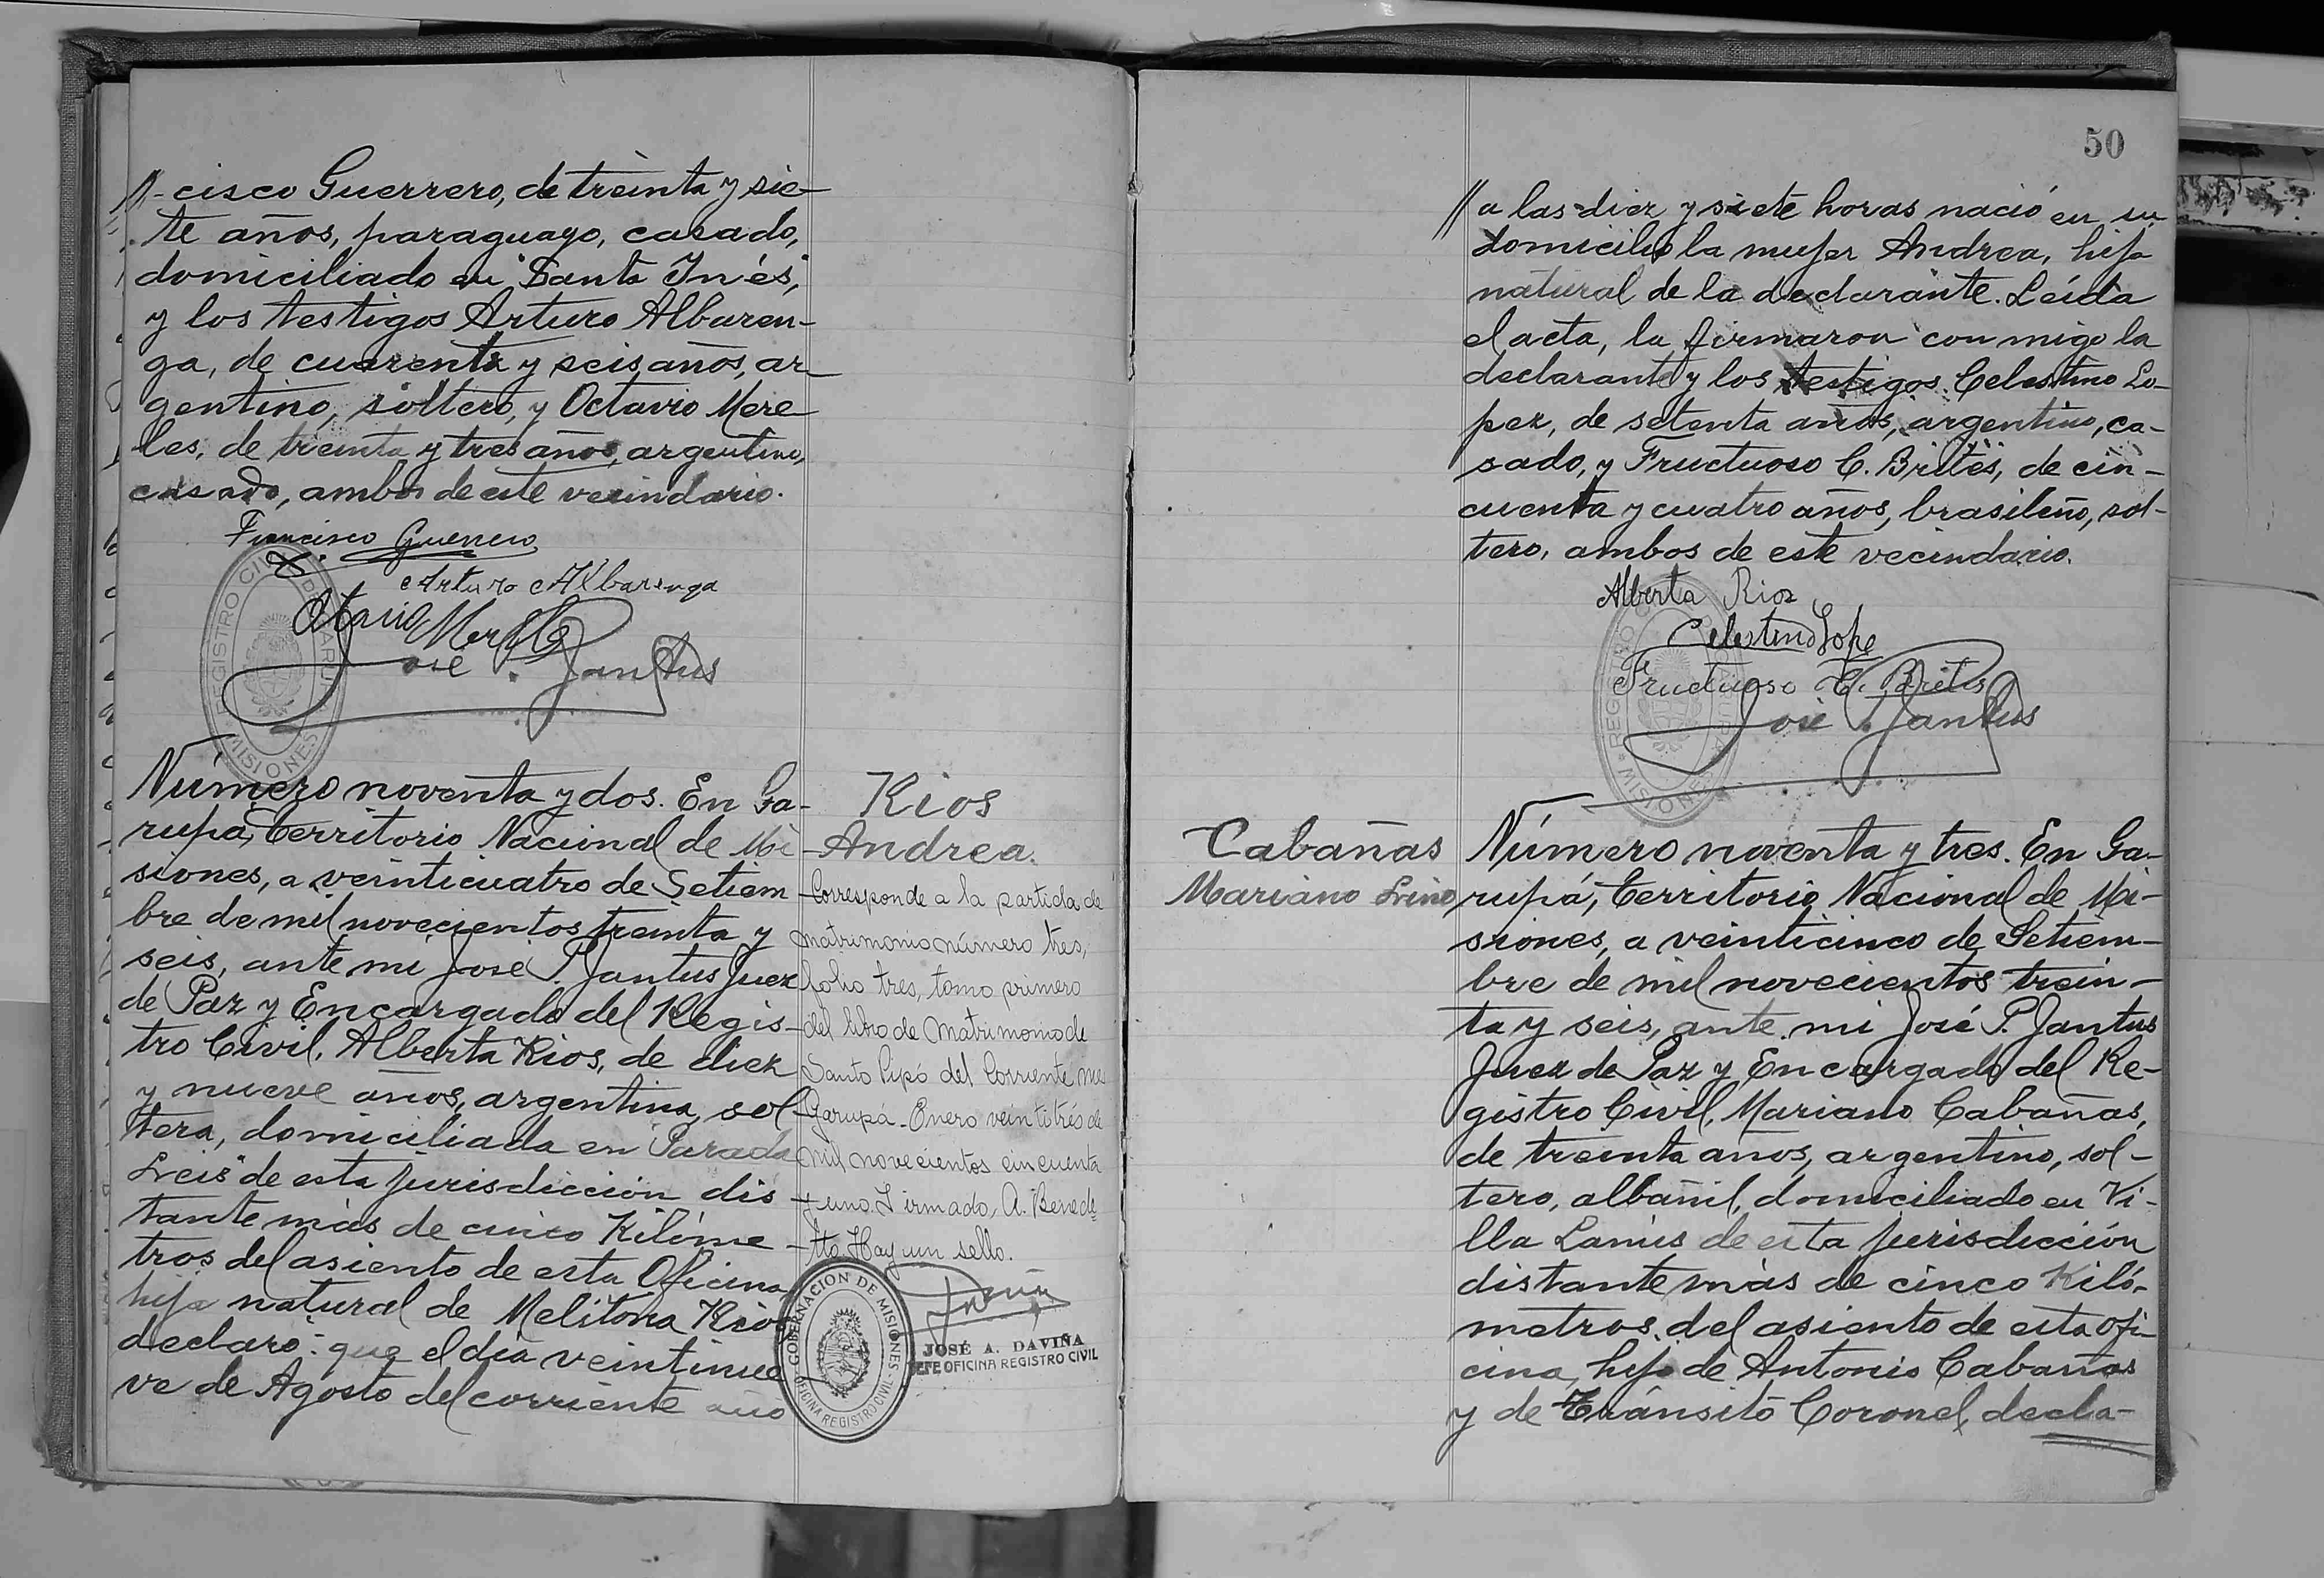 //-cisco Guerrero, de treinta y sie-
te años, paraguayo, casado,
domiciliado en "Santa Inés",
y los testigos Arturo Albaren-
ga, de cuarenta y seis años, ar-
gentino, soltero, y Octavio Mere-
les, de treinta y tres años, argentino,
casado, ambos de este vecindario.
Francisco Guerrero
Arturo Albarenga
Otavio Mereles
José P. Jantus
REGISTRO CIVIL DE GARUPA
MISIONES
Número noventa y dos. En Ga-
rupá, Territorio Nacional de Mi-
siones, a veinticuatro de Setiem-
bre de mil novecientos treinta y
seis, ante mi José P. Jantus Juez
de Paz y Encargado del Regis-
tro Civil, Alberta Rios, de diez
y nueve años, argentina, sol-
tera, domiciliada en "Parada
Leis" de esta jurisdicción dis-
tante más de cinco Kilóme-
tros del asiento de esta Oficina,
hija natural de Melitona Rios
declaró: que el día veintinue-
ve de Agosto del corriente año
Rios
Andrea.
Corresponde a la partida de
matrimonio número tres,
folio tres, tomo primero
del libro de Matrimonio de
Santo Pipó del Corriente mes
Garupá-Enero veintitrés de
mil novecientos cincuenta
y uno. Firmado, A. Benede-
tto. Hay un sello.
GOBERNACION DE MISIONES
OFICINA REGISTRO CIVIL
JOSÉ A. DAVIÑA
JEFE OFICINA REGISTRO CIVIL
50
//a las diez y siete horas nació en su
domicilio la mujer Andrea, hija
natural de la declarante. Leída
el acta, la firmaron conmigo la
declarante y los testigos Celestino Lo-
pez, de setenta años, argentino, ca-
sado, y Fructuoso C. Brites, de cin-
cuenta y cuatro años, brasileño, sol-
tero, ambos de este vecindario.
Alberta Rios
Celestino Lope
Fructuoso C. Brites
José P. Jantus
REGISTRO CIVIL DE GARUPA
MISIONES
Cabañas
Mariano Lino
Número noventa y tres. En Ga-
rupá, Territorio Nacional de Mi-
siones, a veinticinco de Setiem-
bre de mil novecientos trein-
ta y seis, ante mi José P. Jantus
Juez de Paz y Encargado del Re-
gistro Civil, Mariano Cabañas,
de treinta años, argentino, sol-
tero, albañil, domiciliado en Vi-
lla Lanús de esta jurisdicción
distante más de cinco Kiló-
metros del asiento de esta Ofi-
cina, hijo de Antonio Cabañas
y de Tránsito Coronel, decla-